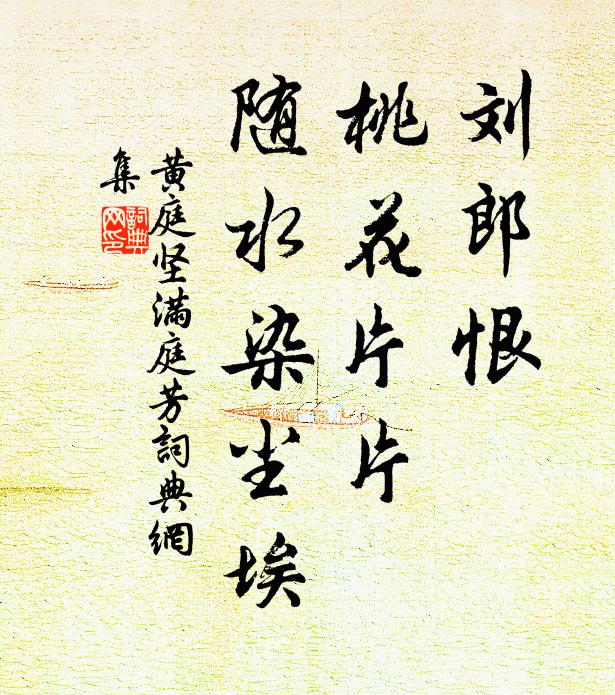 刘郎恨
桃花片片
随水染尘埃
黄庭坚满庭芳詞典網
集
詞典网印